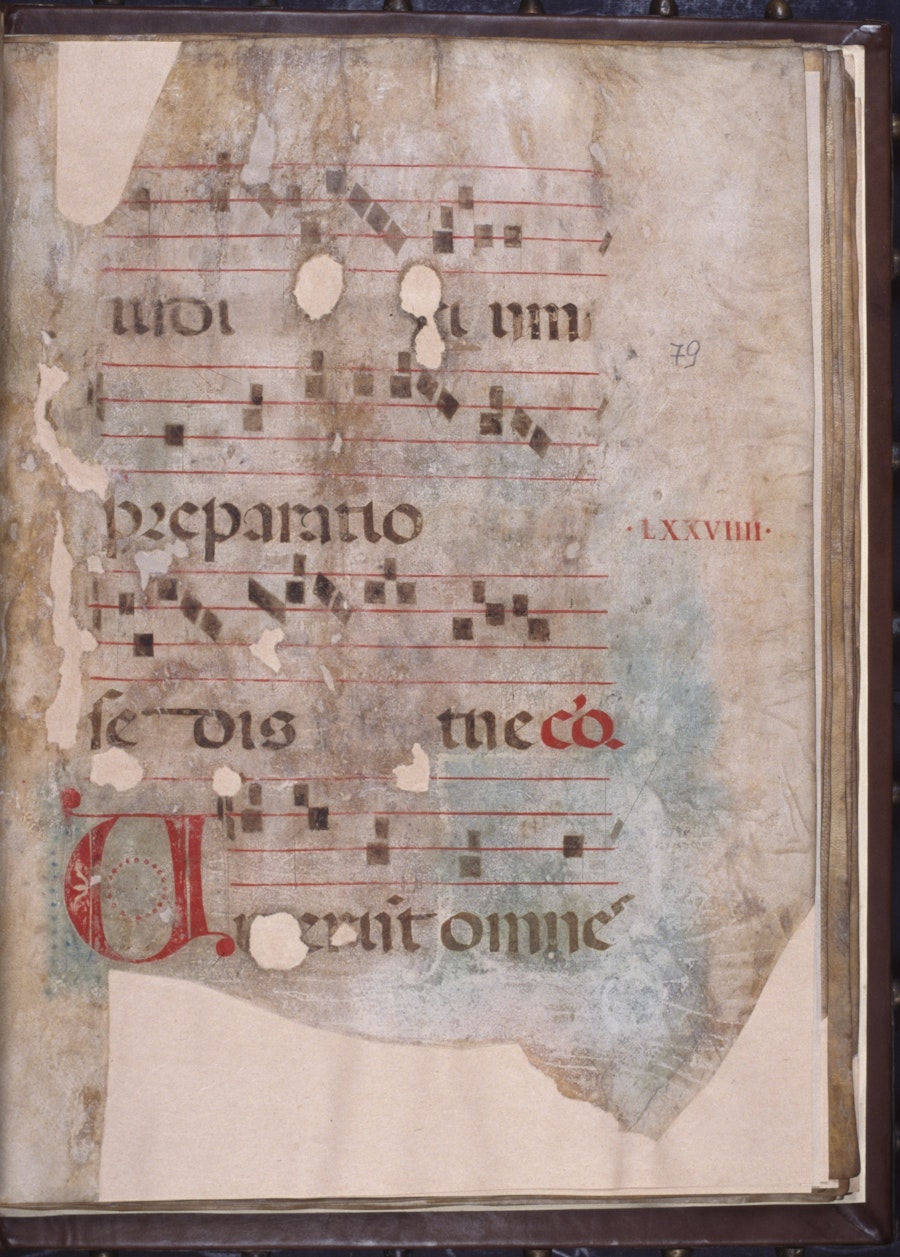 iudi ci um
79
preparatio
·LXXVIIII·
se dis tue cō.
omnes